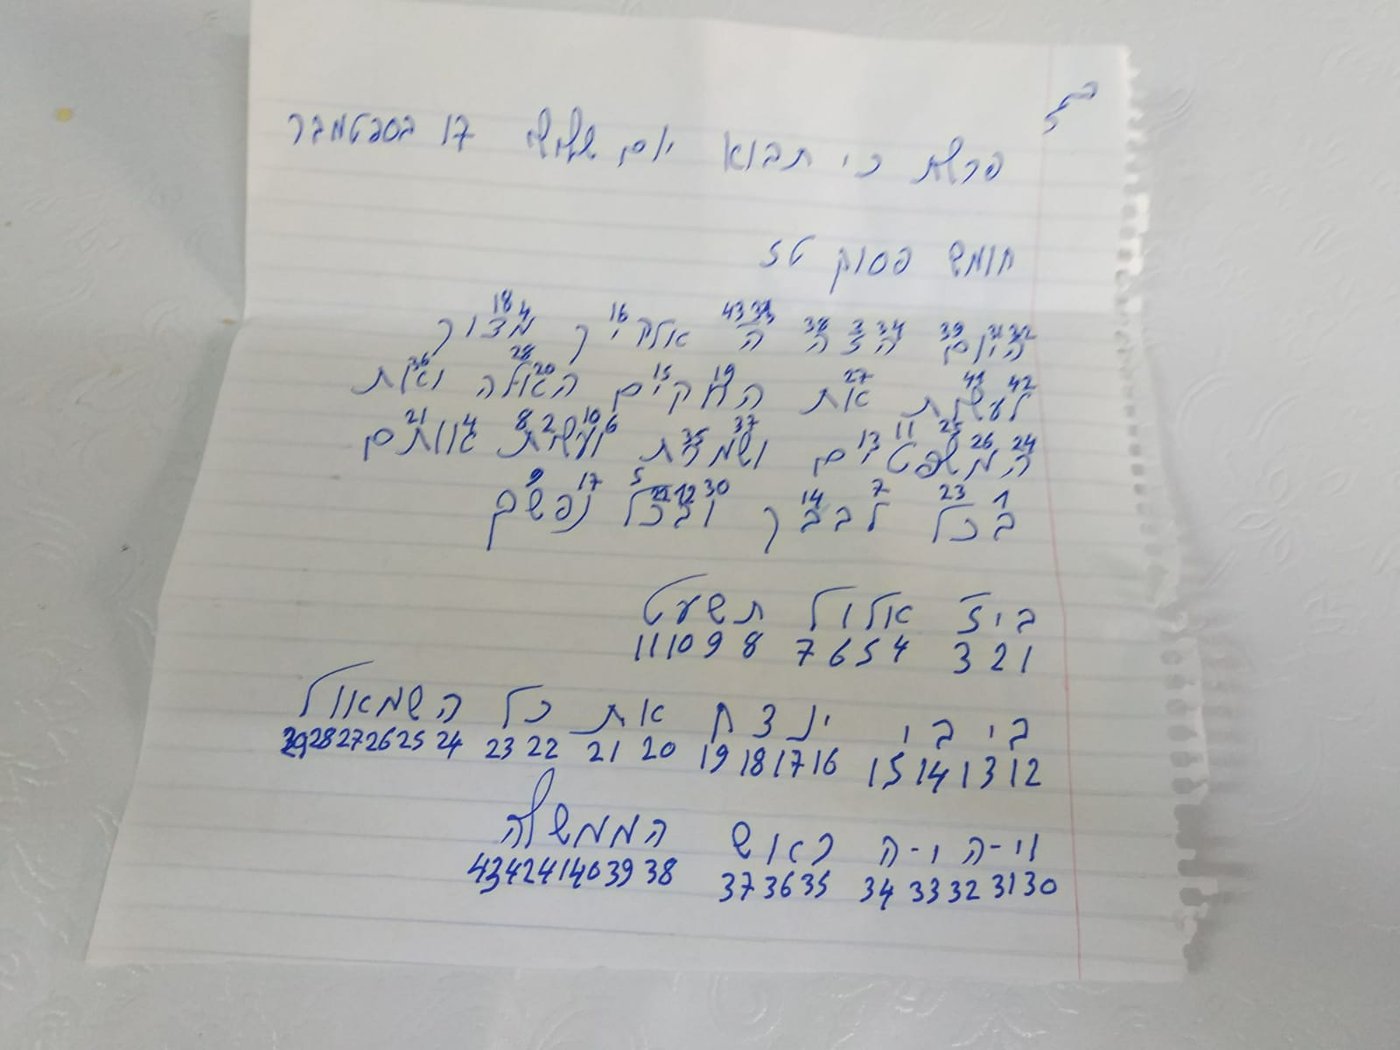 בס
פרשת כי תבוא יום שלישי 17 בספטמבר
חומש פסוק טז
היום הזה ה אלקיך מצוך
לעשות את החקים האלה ואת
המשפטים ושמרת ועשית אותם
בכל לבבך ובכל נפשך
ביז אלול תשעט
11 10 9 8 7 6 5 4 3 2 1
ביבי ינצח את כל השמאול
29 28 27 26 25 24 23 22 21 20 19 18 17 16 15 14 13 12
ויהיה ראש הממשלה
43 42 41 40 39 38 37 36 35 34 33 32 31 30